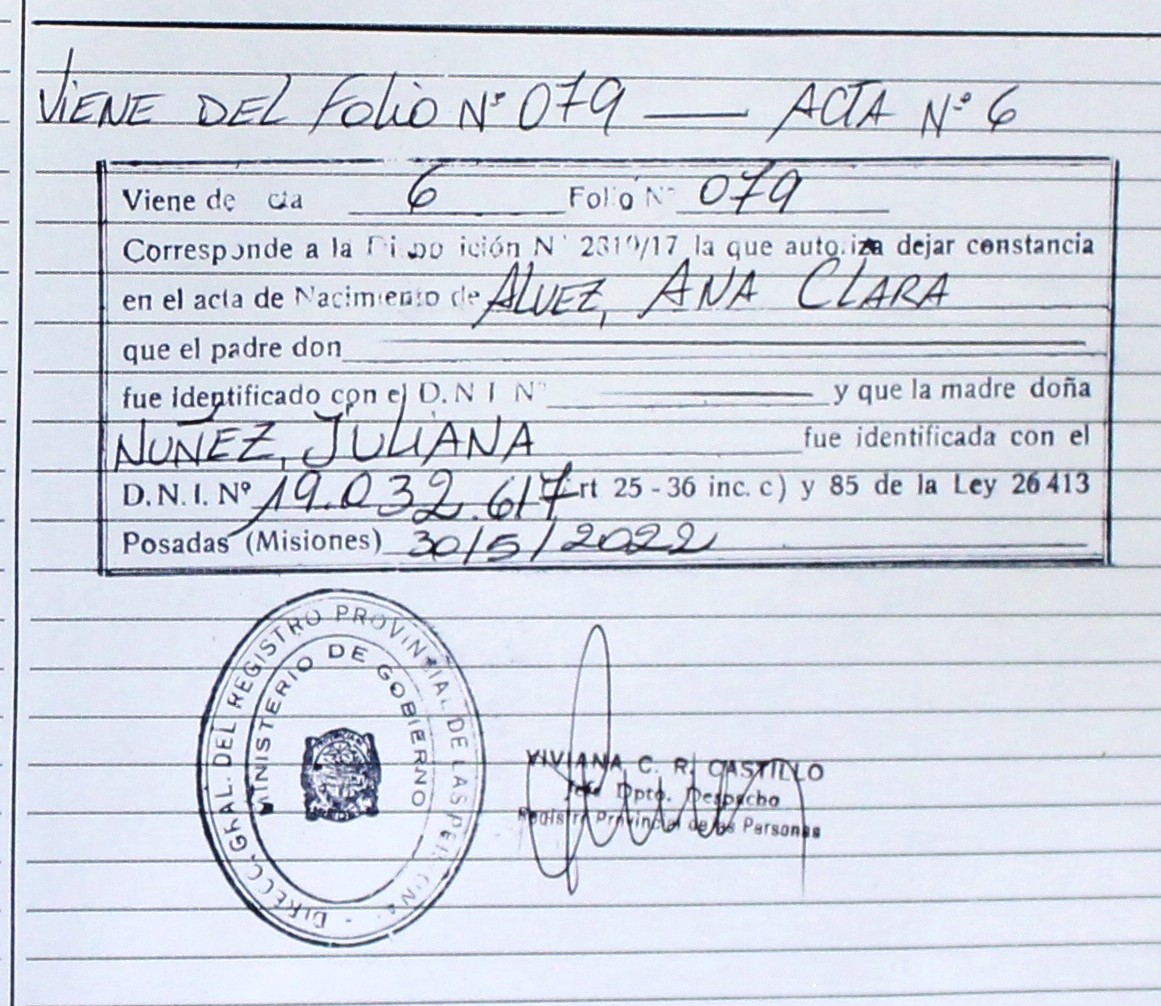 VIENE DEL FOLIO Nº 079 — ACTA Nº 6
Viene de cta 6 Folio Nº 079
Corresponde a la Dispo ición N° 2319/17 la que autoriza dejar constancia
en el acta de Nacimiento de ALVEZ, ANA CLARA
que el padre don
fue identificado con el D.N I N° y que la madre doña
NUÑEZ, JULIANA fue identificada con el
D.N.I. Nº 19.032.617 rt 25 - 36 inc. c) y 85 de la Ley 26413
Posadas (Misiones) 30/5/2022
DIRECC. GRAL. DEL REGISTRO PROVINCIAL DE LAS PERSONAS
MINISTERIO DE GOBIERNO
VIVIANA C. R. CASTILLO
Jefe Dpto. Despacho
Registro Provincial de las Personas